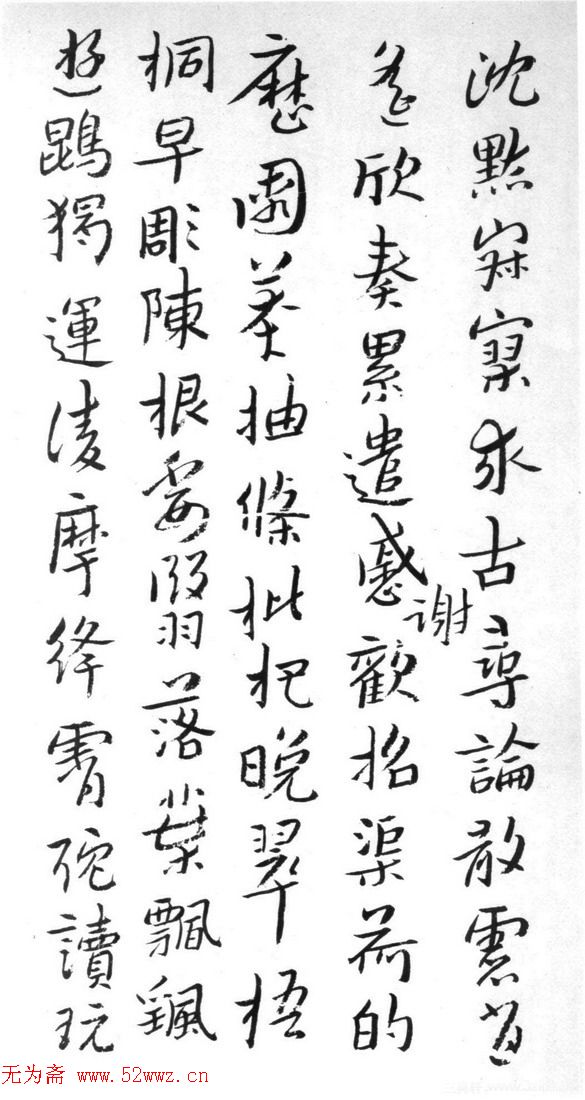 沈默寂寥求古尋論散慮逍
遙欣奏累遣慼謝歡招渠荷的
歷園莽抽條枇杷晚翠梧
桐早彫陳根委翳落葉飄颻
遊鵾獨運淩摩絳霄耽讀玩
无为斋 www.52wwz.cn